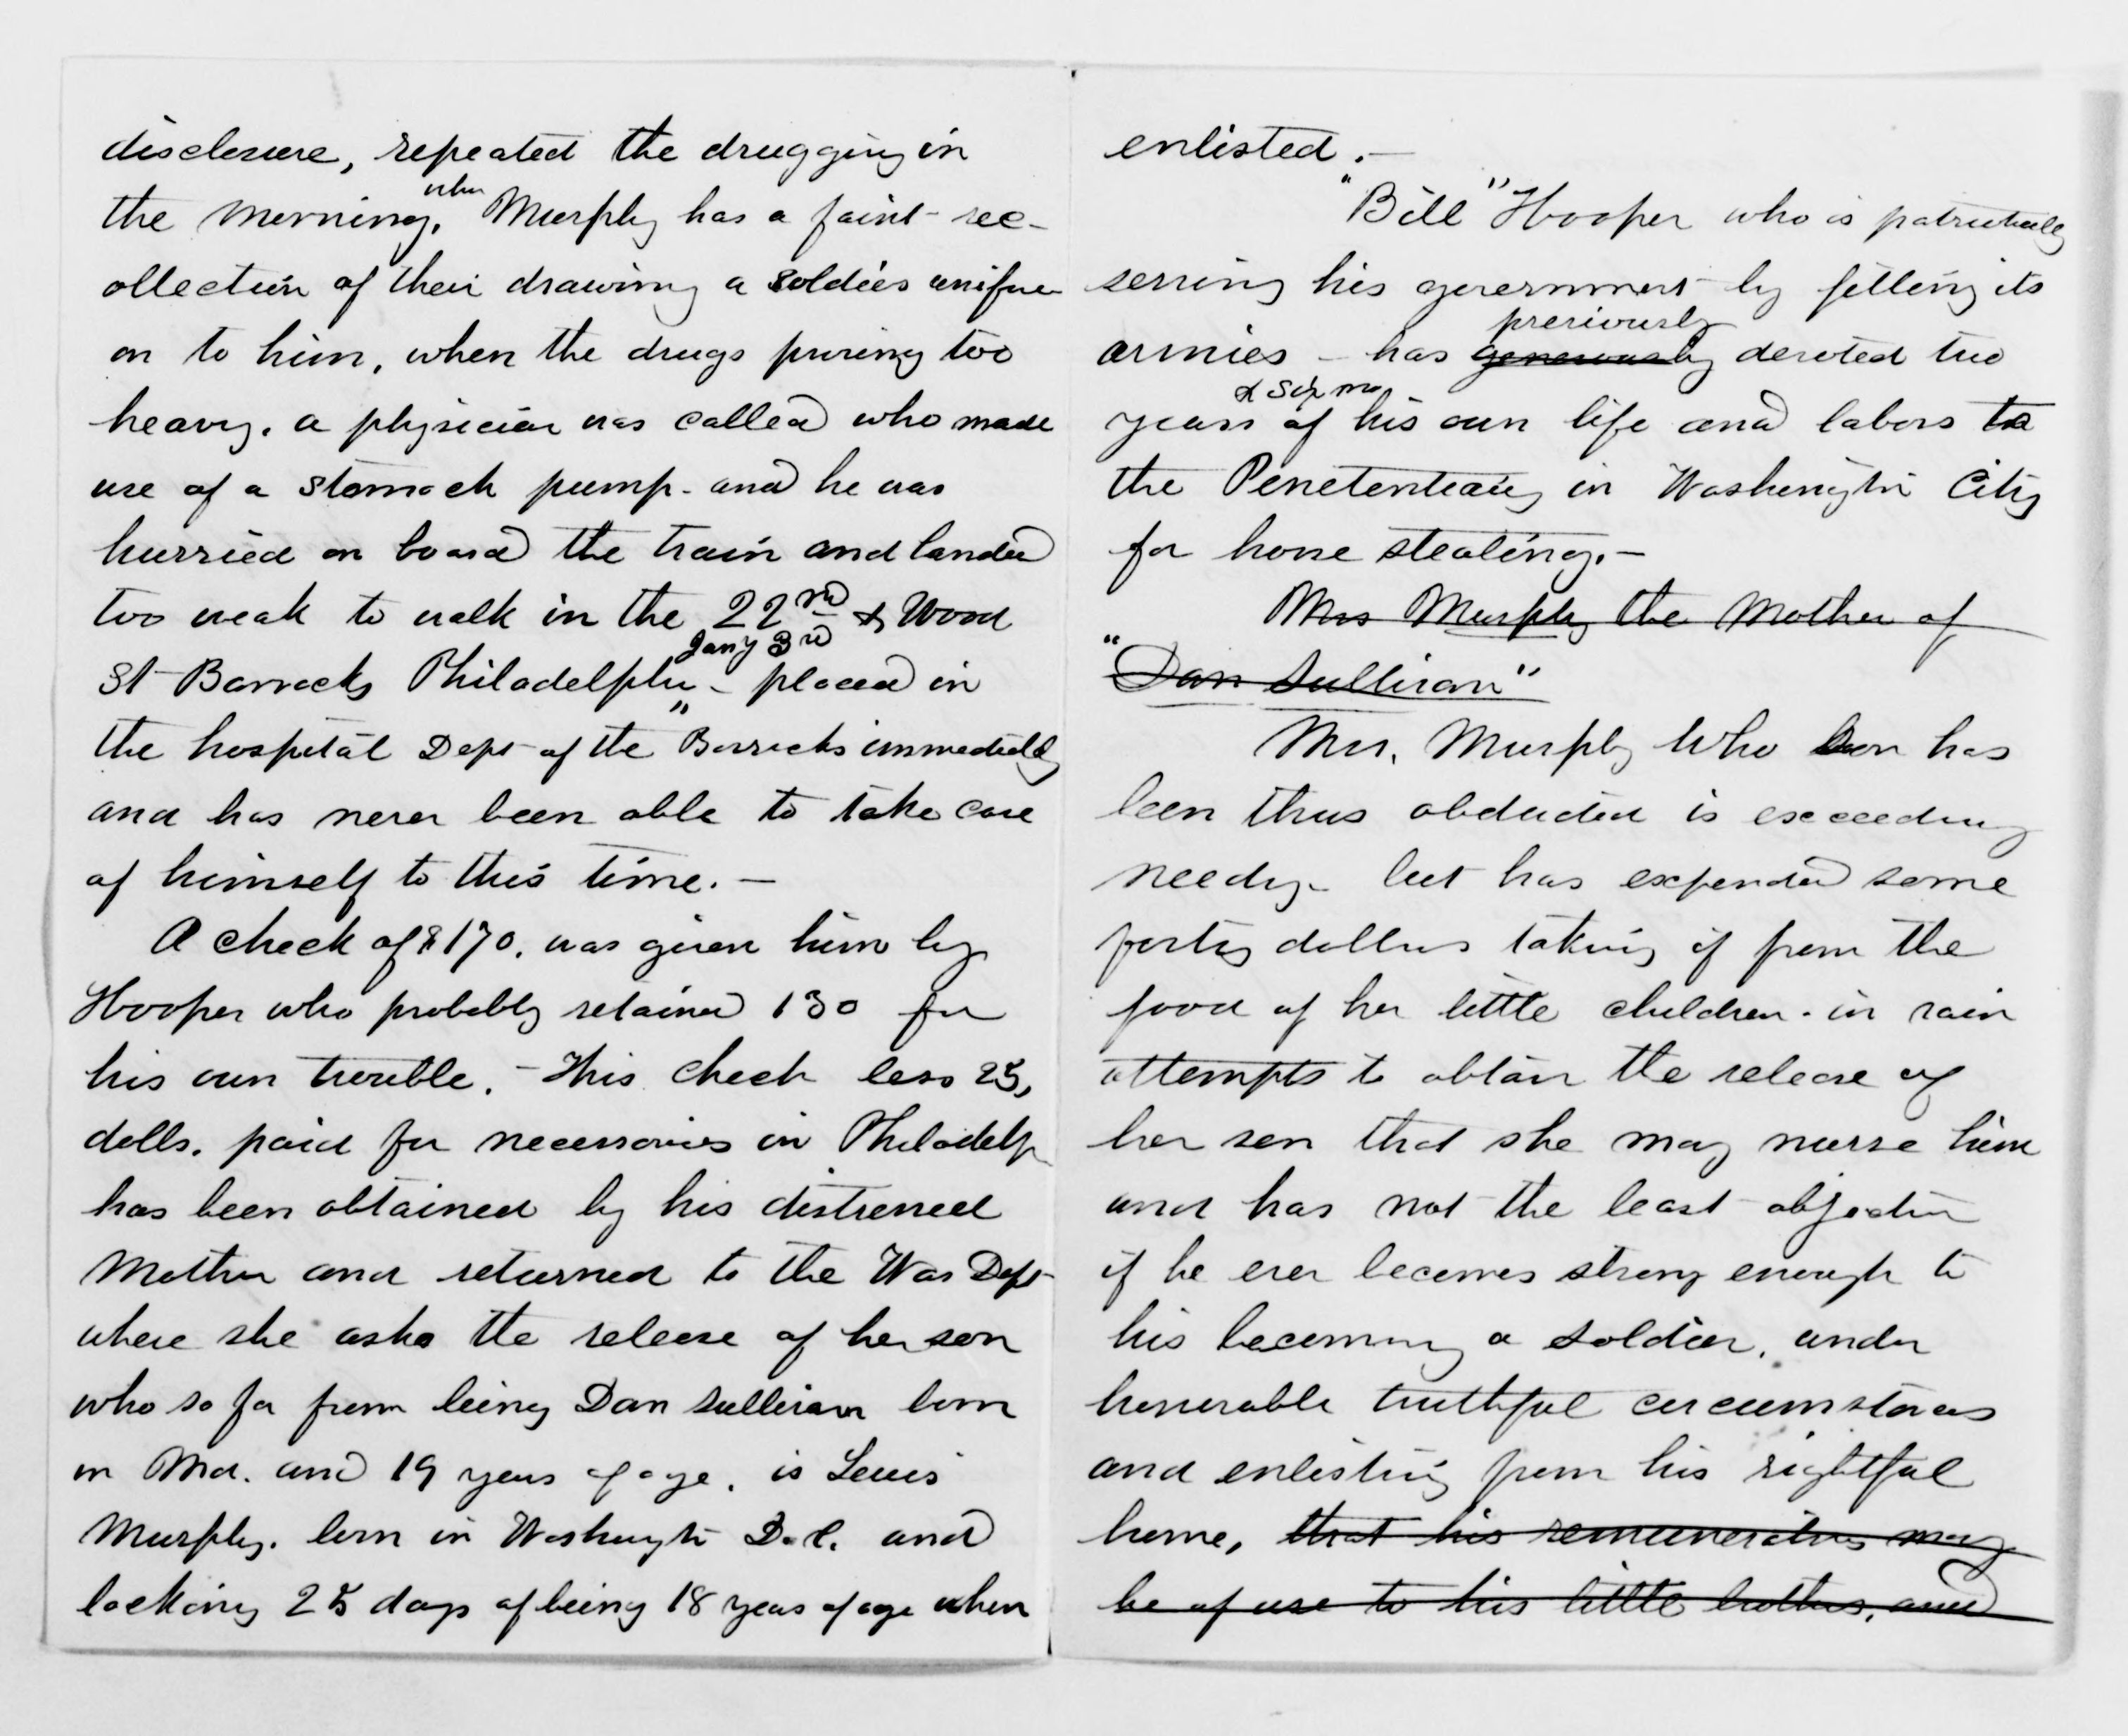 disclosure, repeated the drugging in
the morning. when Murphy has a faint rec-
ollection of their drawing a soldiers uniform
on to him, when the drugs proving too
heavy. a physician was called who made
use of a stomach pump - and he was
hurried on board the train and landed
too weak to walk in the 22nd & Wood
Jany 3rd
St Barracks Philadelphia - placed in
the hospital Dept of the "Barracks immediately
and has never been able to take care
of himself to this time. —
A check of $170. was given him by
Hooper who probably retained 130 for
his own trouble. - This check less 25,
dolls. paid for necessaries in Philadelp
has been obtained by his distressed
Mother and returned to the War Dept
where she asks the release of her son
who so far from being Dan Sullivan born
in Md. and 19 years of age, is Lewis
Murphy. born in Washington D.C. and
lacking 25 days of being 18 years of age when
enlisted. —
"Bill" Hooper who is patriotically
serving his government by filling its
previously
armies - has generously devoted two
& six mo
years of his own life and labors to
the Penetentiary in Washington City
for horse stealing. —
Mrs Murphy the Mother of
"Dan Sullivan"
Mrs. Murphy who son has
been thus abducted is exceeding
needy - but has expended some
forty dollars taking if from the
food of her little children - in vain
attempts to obtain the release of
her son that she may nurse him
and has not the least objection
if he ever becomes strong enough to
his becoming a soldier, under
honorable truthful circumstances
and enlisting from his rightful
home, that his remuneration may
be of use to his little brothers, and